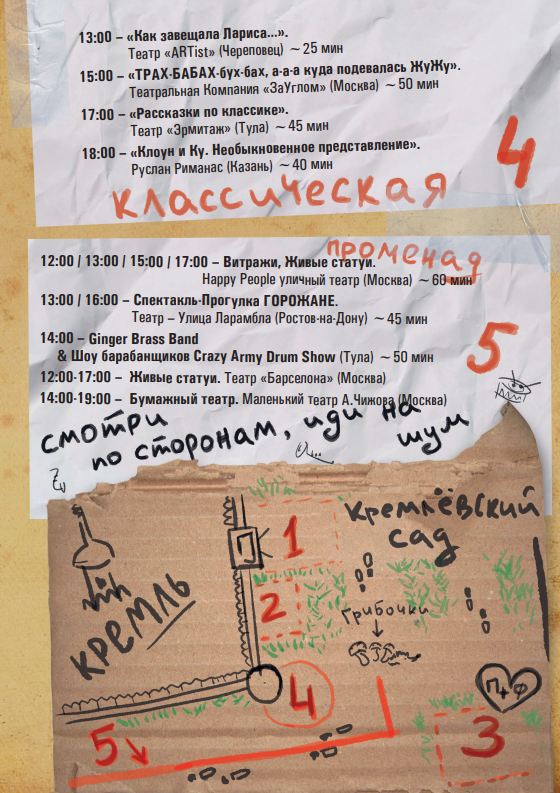 13:00 – «Как завещала Лариса...».
Театр «ARTist» (Череповец) ~ 25 мин
15:00 – «ТРАХ-БАБАХ-бух-бах, а-а-а куда подевалась ЖуЖу».
Театральная Компания «ЗаУглом» (Москва) ~ 50 мин
17:00 – «Рассказы по классике».
Театр «Эрмитаж» (Тула) ~ 45 мин
18:00 – «Клоун и Ку. Необыкновенное представление».
Руслан Риманас (Казань) ~ 40 мин
4
классическая
променад
12:00 / 13:00 / 15:00 / 17:00 – Витражи, Живые статуи.
Happy People уличный театр (Москва) ~ 60 мин
13:00 / 16:00 – Спектакль-Прогулка ГОРОЖАНЕ.
Театр – Улица Ларамбла (Ростов-на-Дону) ~ 45 мин
14:00 – Ginger Brass Band
& Шоу барабанщиков Crazy Army Drum Show (Тула) ~ 50 мин
5
12:00-17:00 – Живые статуи. Театр «Барселона» (Москва)
14:00-19:00 – Бумажный театр. Маленький театр А.Чижова (Москва)
смотри
по сторонам, иди на
шум
Кремлёвский
сад
1
2
Грибочки
кремль
4
П+Ф
5
3